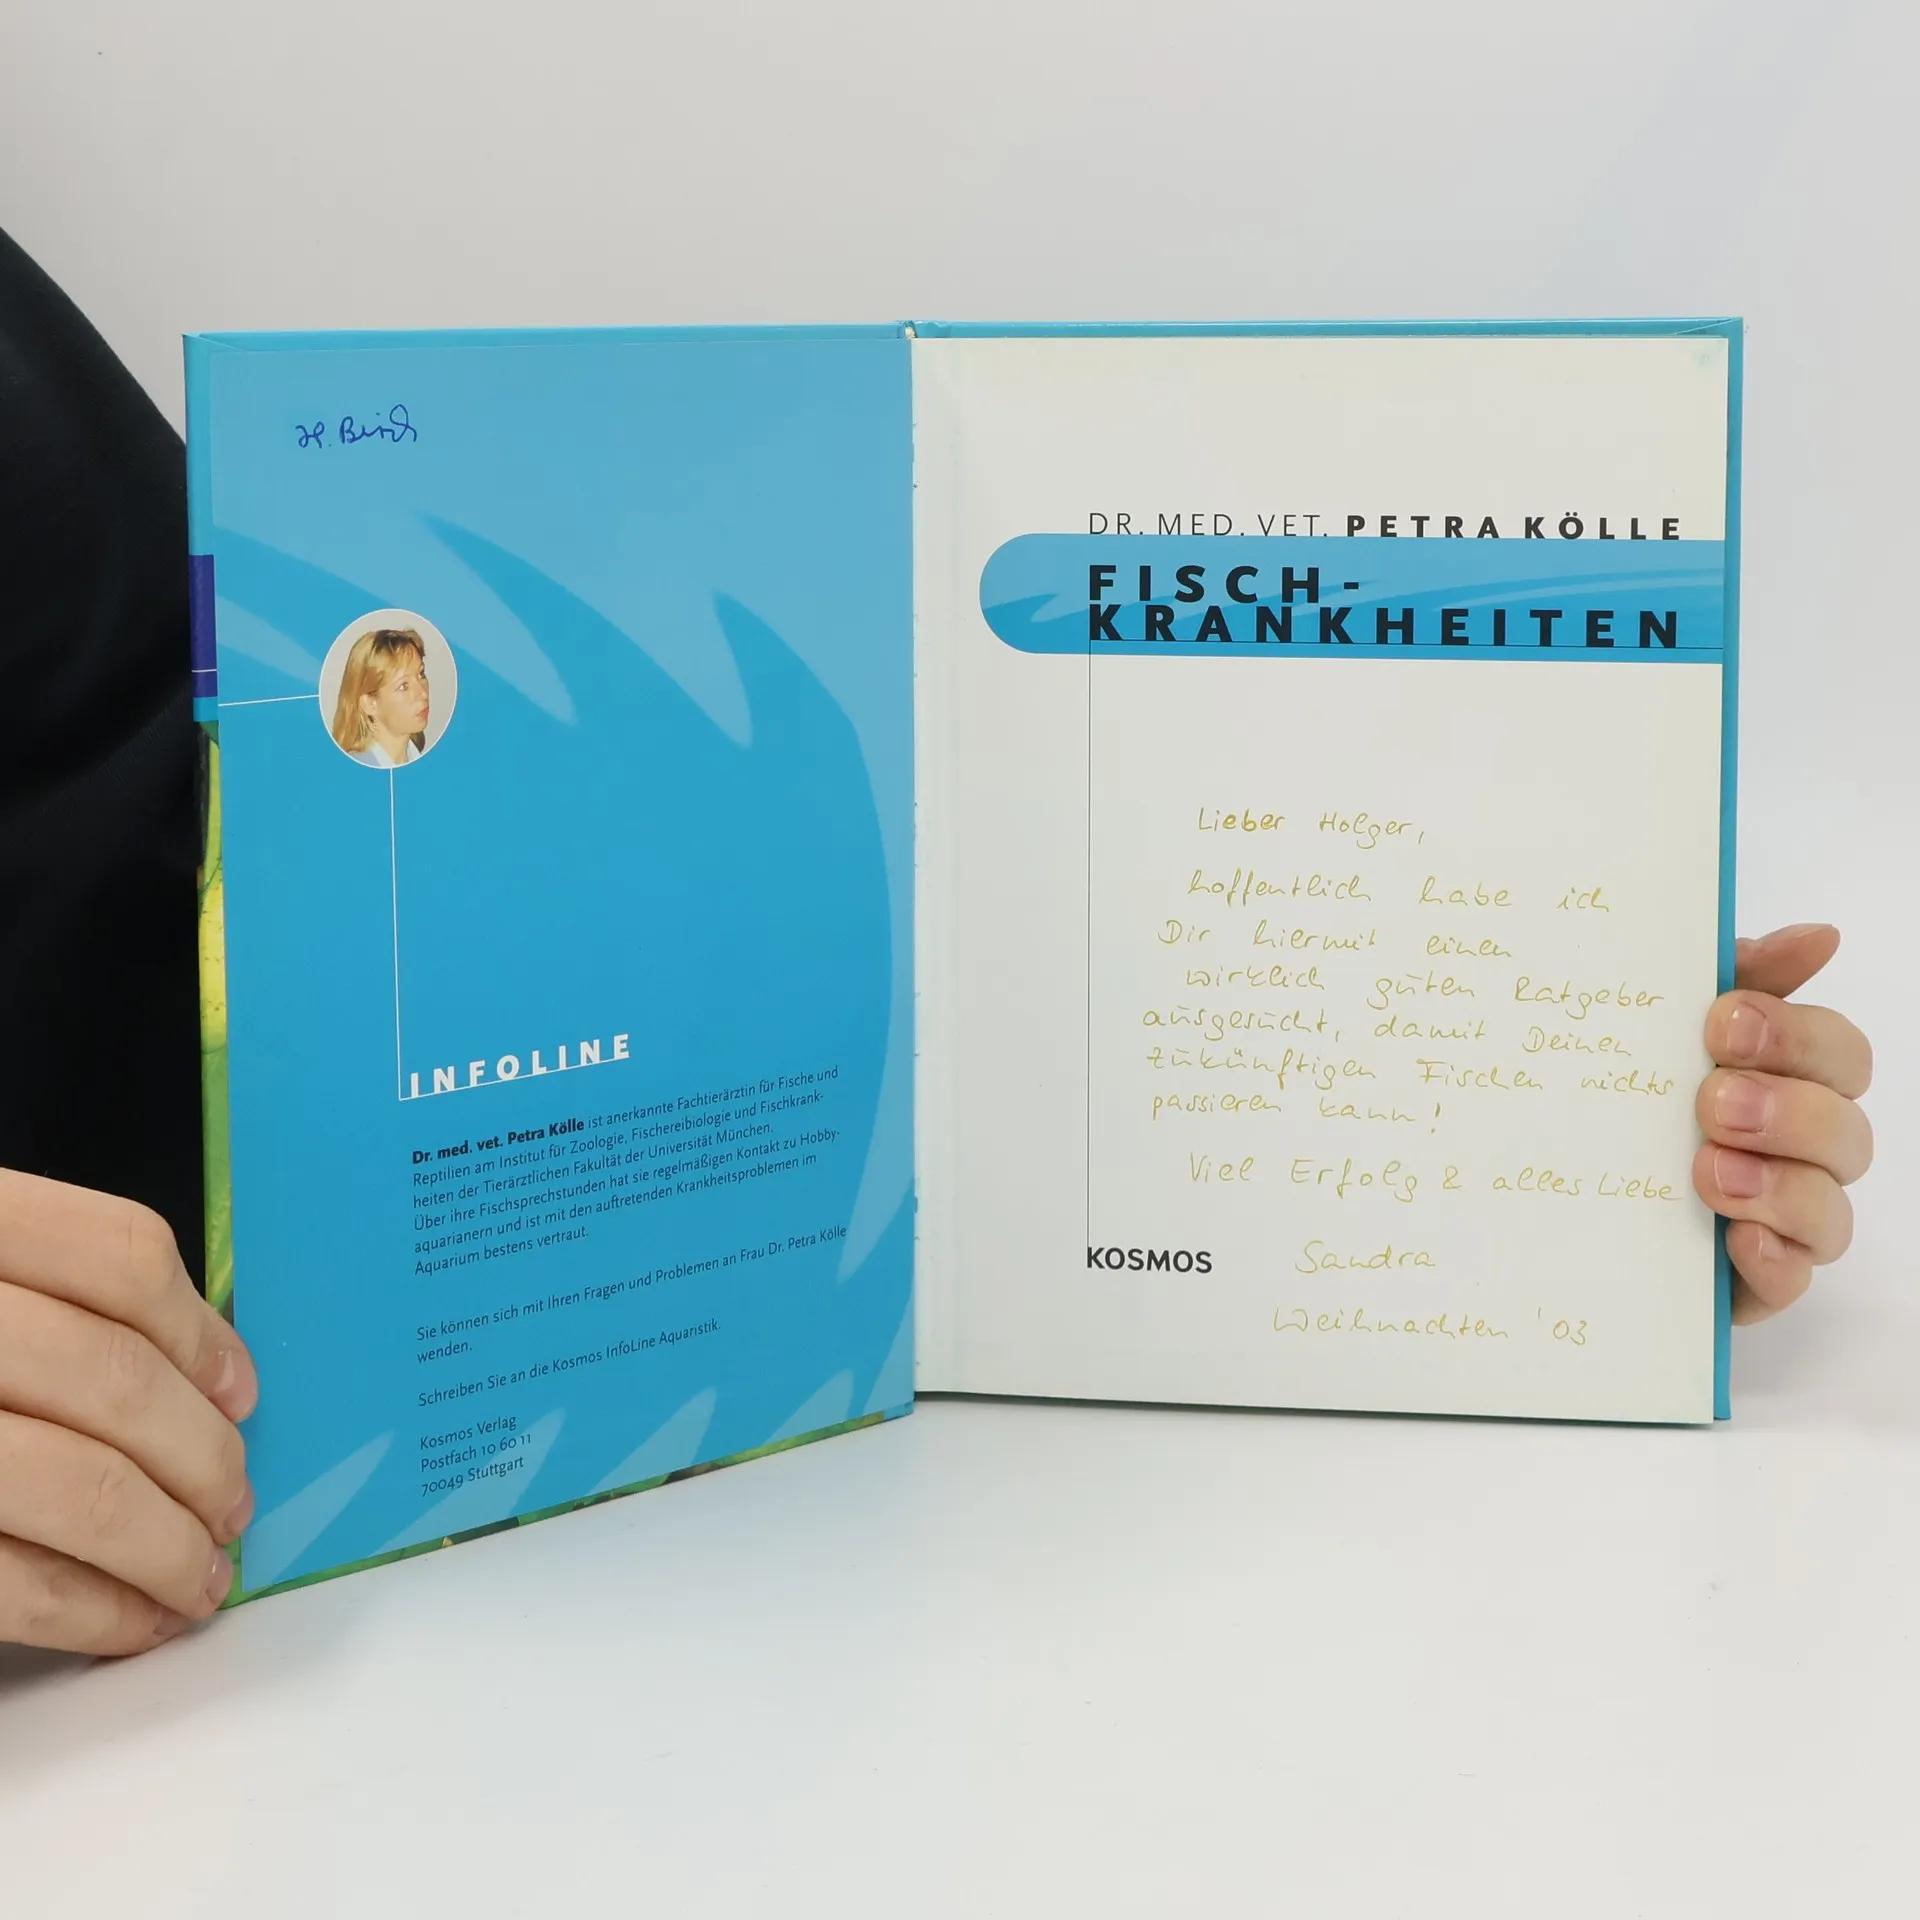 INFOLINE
Dr. med. vet. Petra Kölle ist anerkannte Fachtierärztin für Fische und
Reptilien am Institut für Zoologie, Fischereibiologie und Fischkrank-
heiten der Tierärztlichen Fakultät der Universität München.
Über ihre Fischsprechstunden hat sie regelmäßigen Kontakt zu Hobby-
aquarianern und ist mit den auftretenden Krankheitsproblemen im
Aquarium bestens vertraut.
Sie können sich mit Ihren Fragen und Problemen an Frau Dr. Petra Kölle
wenden.
Schreiben Sie an die Kosmos InfoLine Aquaristik.
Kosmos Verlag
Postfach 10 60 11
70049 Stuttgart
DR. MED. VET. PETRA KÖLLE
FISCH-
KRANKHEITEN
Lieber Holger,
hoffentlich habe ich
Dir hiermit einen
wirklich guten Ratgeber
ausgesucht, damit Deinen
zukünftigen Fischen nichts
passieren kann!
Viel Erfolg & alles Liebe
Sandra
Weihnachten '03
KOSMOS